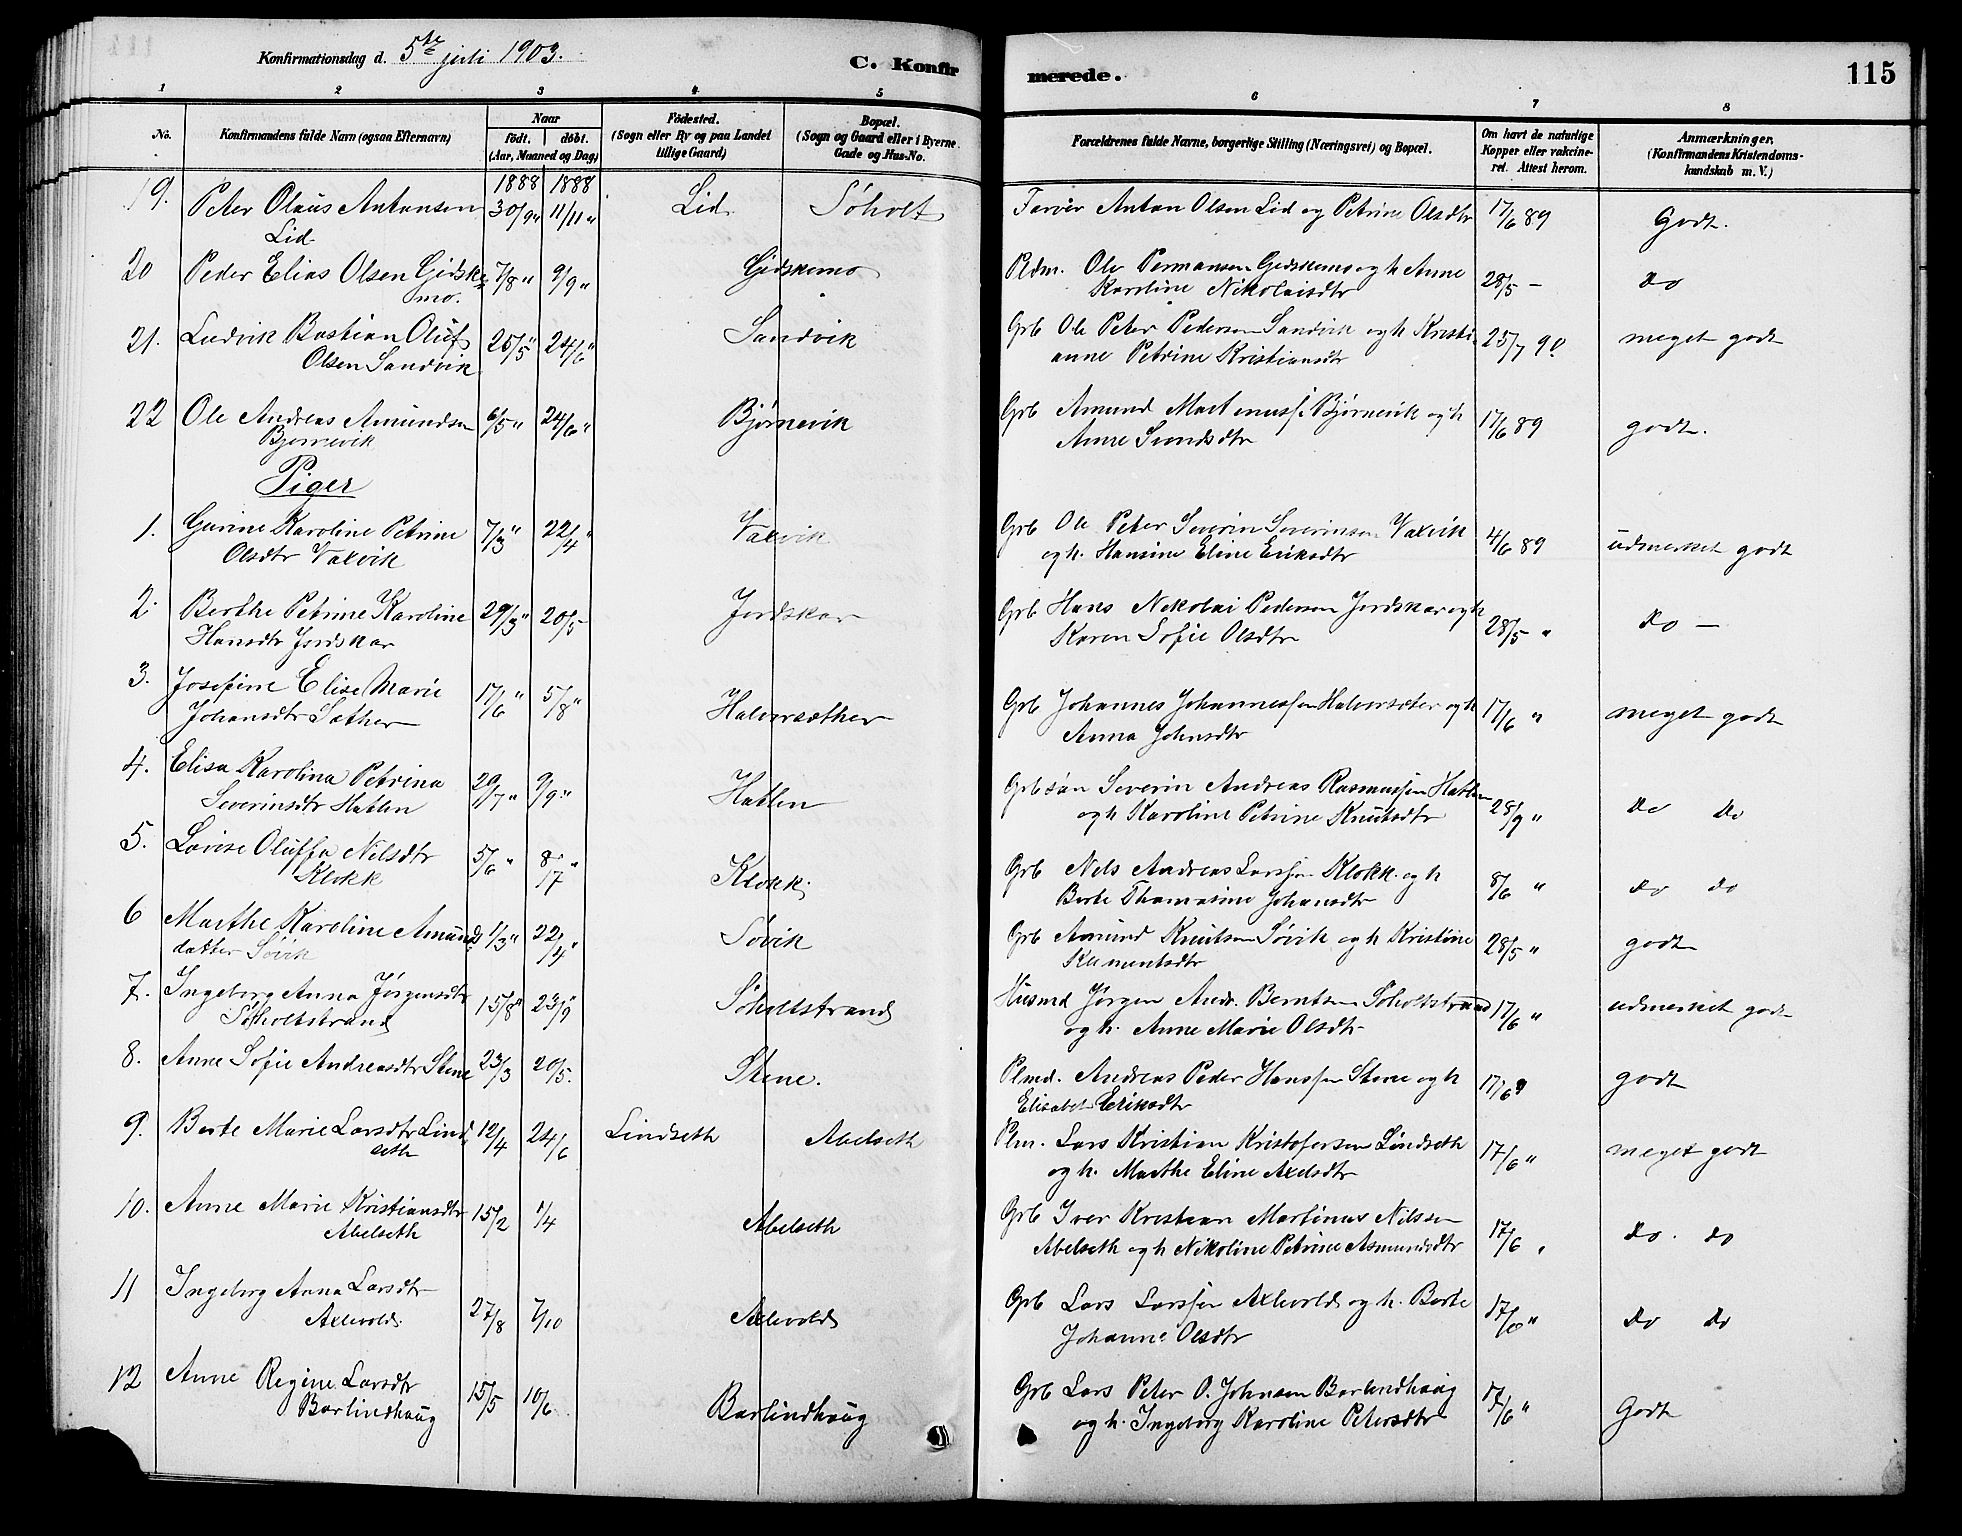 Konfirmationsdag d. 5te juli 1903.
C. Konfir
merede.
115
1 2 3 4 5 6 7 8
No.
Konfirmandens fulde Navn (ogsaa Efternavn)
Naar
født. døbt.
(Aar, Maaned og Dag)
Fødested.
(Sogn eller By og paa Landet
tillige Gaard)
Bopæl.
(Sogn og Gaard eller i Byerne
Gade og Hus-No.
Forældrenes fulde Navne, borgerlige Stilling (Næringsvei) og Bopæl.
Om havt de naturlige
Kopper eller vakcine-
ret. Attest herom.
Anmærkninger.
(Konfirmandens Kristendoms-
kundskab m. V.)
1888 1888
19. Peter Olaus Antonsen 30/9 " 11/11 " Lid Søholt Farver Anton Olsen Lid og Petrine Olsdtr 17/6 89 Godt.
Lid
20 Peder Elias Olsen Gidske 7/8 " 9/9 " Gidskemo Pldm. Ole Permansen Gidskemo og h Anne 28/5 - do
mo. Karoline Nikolaisdtr
21. Ludvik Bastian Oluf 25/5 " 24/6 " Sandvik Grb Ole Peter Pedersen Sandvik og h Kristi- 25/7 90 meget godt
Olsen Sandvik anne Petrine Kristiansdtr
22 Ole Andreas Amundsen 6/5 " 24/6 " Bjørnevik Grb Amund Martinussn Bjørnevik og h 17/6 89 godt.
Bjørnevik Anne Sivndsdtr
Piger
1. Gurine Karoline Petrine 7/3 " 22/4 " Vaxvik Grb Ole Peter Severin Severinsen Vaxvik 4/6 89 udmerket godt
Olsdtr Vaxvik og h. Hansine Eline Eriksdtr
2. Berthe Petrine Karoline 29/3 " 20/5 - Jordskar Grb Hans Nikolai Pedersen Jordskar og h 28/5 " do -
Hansdtr Jordskar Karen Sofie Olsdtr
3. Josefine Elise Marie 17/6 " 5/8 " Halvorsæther Grb Johannes Johannessen Halvorsæter og h 17/6 " meget godt
Johansdtr Sæther Anna Johnsdtr
4. Elisa Karolina Petrina 29/7 " 9/9 " Hatlen Grb søn Severin Andreas Rasmussen Hatlen 28/9 " do do
Severinsdtr Hatlen og h Karoline Petrine Knutsdtr
5. Lovise Oluffa Nilsdtr 5/6 " 8/7 " Klokk. Grb Nels Andreas Larssen Klokk. og h 8/6 " do do
Klokk Berte Thomasine Johansdtr
6 Marthe Karoline Amunds 11/3 " 22/4 " Søvik Grb Amund Knutsen Søvik og h Kristine 28/5 " godt
datter Søvik Klementsdtr
7. Ingeborg Anna Jørgensdtr 15/8 " 23/9 " Søholtstrand Husmd Jørgen Andr. Berntsen Søholtstrand 17/6 " udmerket godt
Søholtstrand og h. Anne Marie Olsdtr
8. Anne Sofie Andreasdtr Stene 23/3 20/5. Stene. Plmd. Andreas Peder Hanssen Stene og h 17/6 9 godt
Elisabet Eriksdtr
9. Berte Marie Larsdtr Lind 12/4 24/6 Lindseth Abelseth Plm. Lars Kristian Kristofersen Lindseth 17/6 " meget godt
seth og h. Marthe Eline Axelsdtr
10. Anne Marie Kristiansdtr 15/2 1/4 Abelseth Grb Iver Kristian Martinus Nilssen 17/6 " do. do
Abelseth Abelseth og h Nikoline Petrine Asmundsdtr
11 Ingeborg Anna Larsdtr 27/8 7/10 Axlevold Grb Lars Larssen Axlevold og h. Berte 17/6 " do do
Axlevold. Johanne Olsdtr
12 Anne Regine Larsdtr 15/5 10/6 Barlindhaug Grb Lars Peter O. Johnsen Barlindhaug 17/6 " Godt
Barlindhaug og h. Ingeborg Karoline Petersdtr